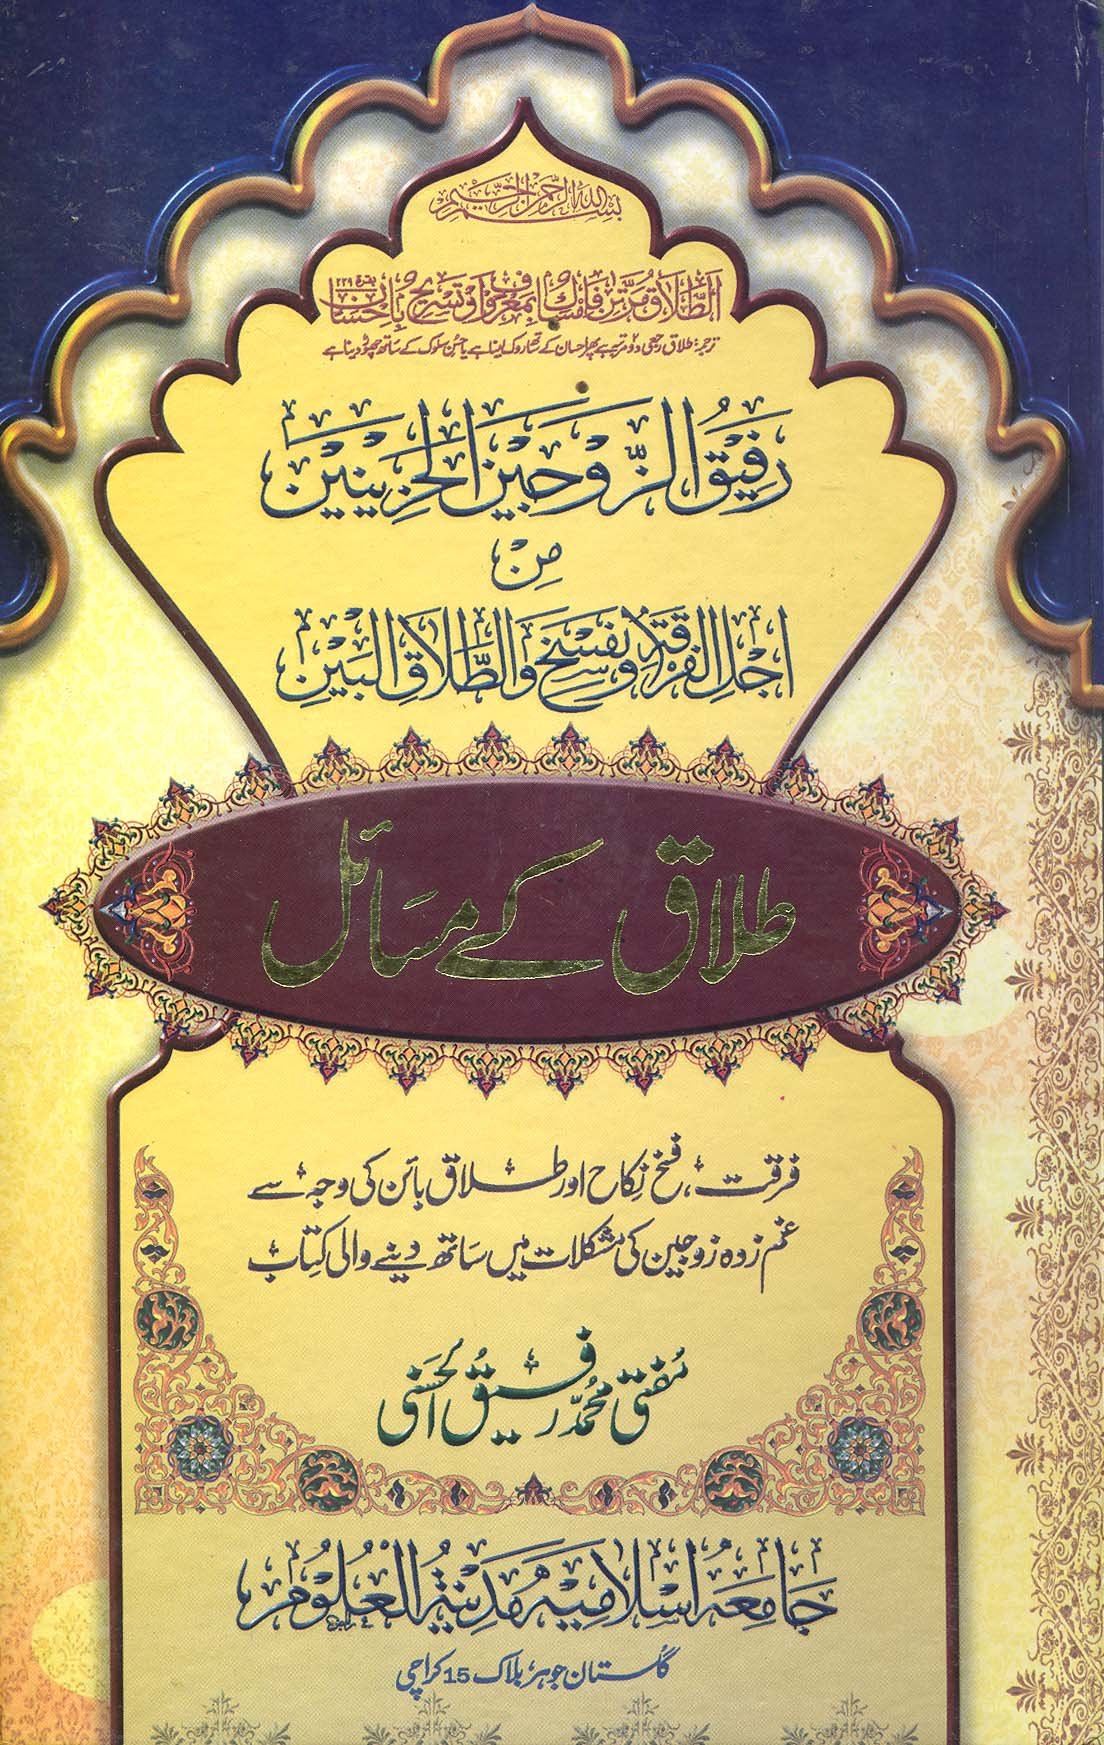 بسم الله الرحمن الرحيم
اَلطَّلَاقُ مَرَّتٰنِ فَاِمْسَاكٌ بِمَعْرُوْفٍ اَوْ تَسْرِيْحٌ بِاِحْسَانٍ بقرہ ۲۲۹
ترجمہ: طلاق رجعی دو مرتبہ ہے پھر احسان کے ساتھ روک لینا ہے یا حسن سلوک کے ساتھ چھوڑ دینا ہے
رَفِيْقُ الزَّوْجَيْنِ الْحَزِيْنَيْنِ
مِنْ
اَجْلِ الْفُرْقَةِ وَفَسْخٍ وَالطَّلَاقِ الْبَيْنِ
طلاق کے مسائل
فرقت، فسخ نکاح اور طلاق بائن کی وجہ سے
غم زدہ زوجین کی مشکلات میں ساتھ دینے والی کتاب
مُفتی محمّد رفیق الحَسَنی
جامعہ اسلامیہ مدینۃ العلوم
گلستان جوہر بلاک 15 کراچی